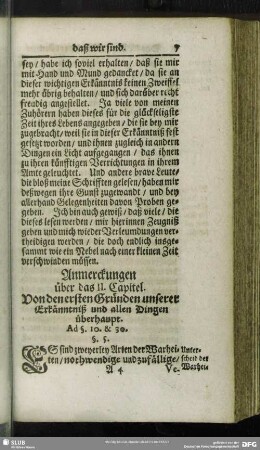 daß wir sind. 7
sey/ habe ich soviel erhalten/ daß sie mir
mit Hand und Mund gedancket/ da sie an
dieser wichtigen Erkänntnis keinen Zweiffel
mehr übrig behalten/ und sich darüber recht
freudig angestellet. Ja viele von meinen
Zuhörern haben dieses für die glückseligste
Zeit ihres Lebens angegeben/ die sie bey mir
zugebracht/ weil sie in dieser Erkänntniß fest
gesetzt worden/ und ihnen zugleich in andern
Dingen ein Licht aufgegangen/ das ihnen
zu ihren künfftigen Verrichtungen in ihrem
Amte geleuchtet. Und andere brave Leute/
die bloß meine Schrifften gelesen/ haben mir
deßwegen ihre Gunst zugewandt/ und bey
allerhand Gelegenheiten davon Proben ge-
geben. Ich bin auch gewiß/ daß viele/ die
dieses lesen werden/ mir hierinnen Zeugniß
geben und mich wieder Verleumdungen ver-
theidigen werden/ die doch endlich insge-
sammt wie ein Nebel nach einer kleinen Zeit
verschwinden müssen.
Anmerckungen
über das II. Capitel.
Von den ersten Gründen unserer
Erkänntniß und allen Dingen
überhaupt.
Ad §. 10. & 30.
§. 5.
ES sind zweyerley Arten der Warhei- Unter-
ten/ nothwendige und zufällige/ scheid der
A 4 Ve- Warhei-
SLUB
DFG